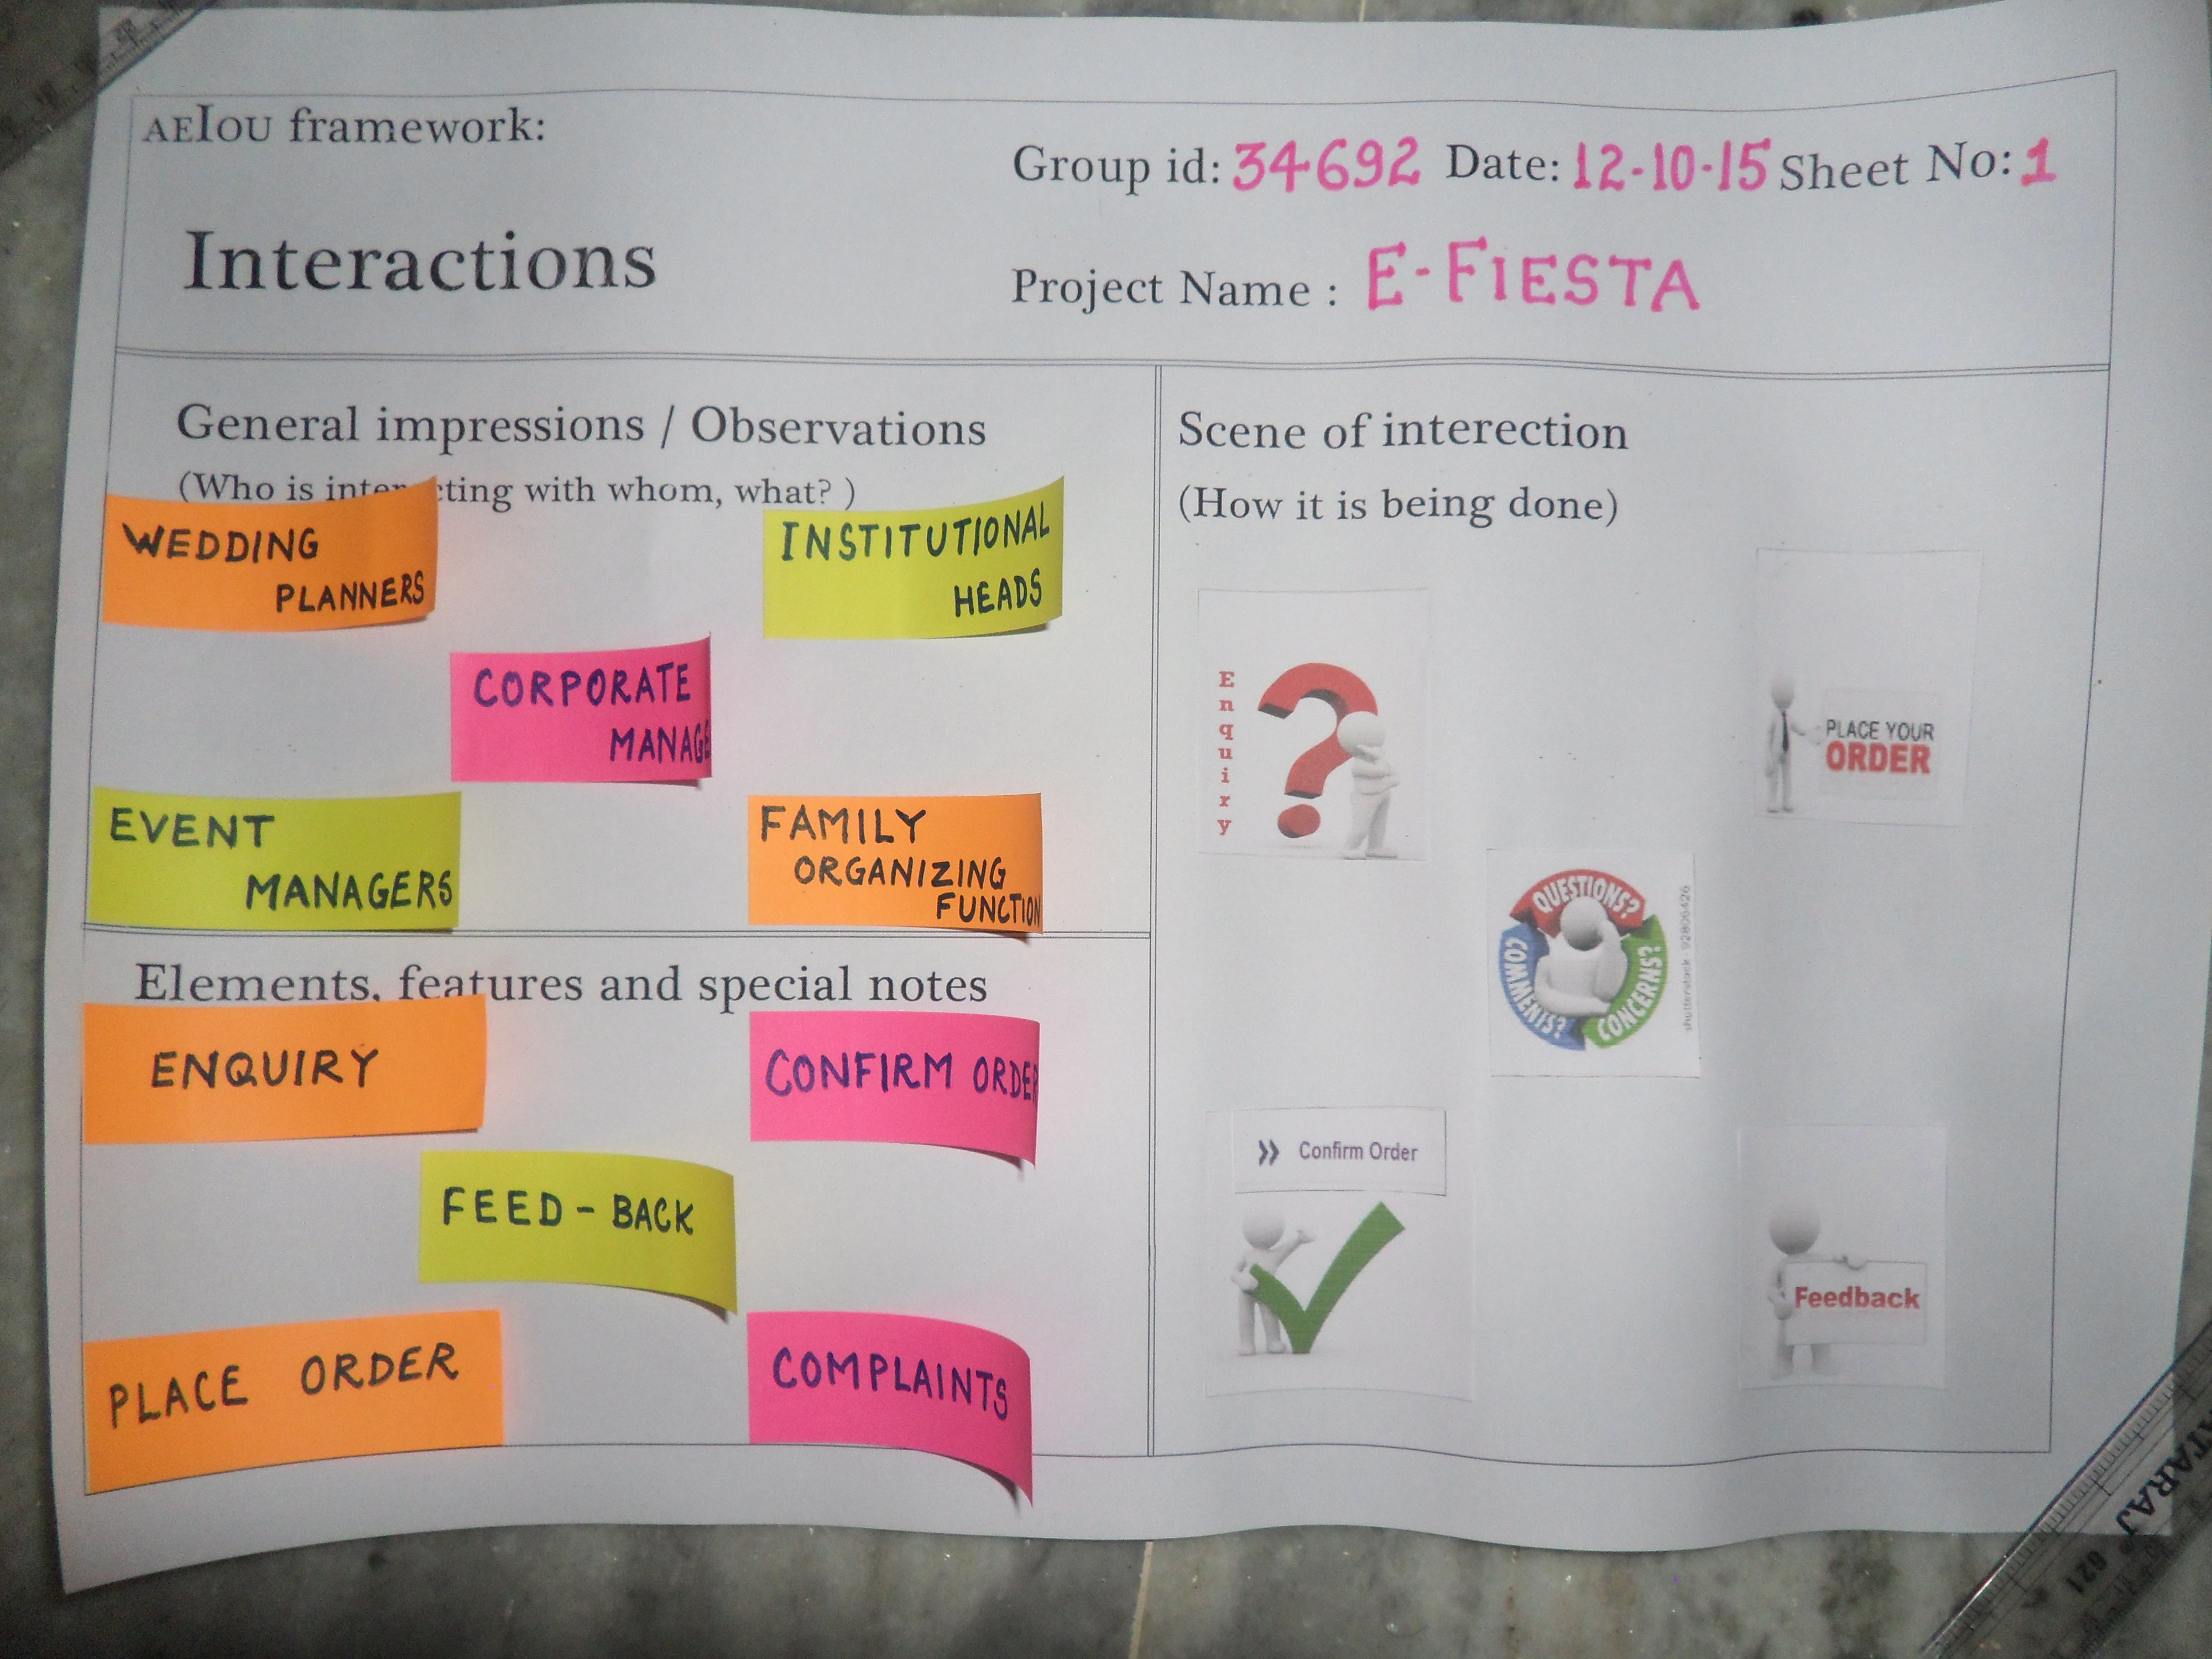 AEIOU framework:
Group id: 34692 Date: 12-10-15 Sheet No: 1
Interactions
Project Name : E-FIESTA
General impressions / Observations
(Who is interacting with whom, what? )
WEDDING
PLANNERS
INSTITUTIONAL
HEADS
CORPORATE
MANAGE
EVENT
MANAGERS
FAMILY
ORGANIZING
FUNCTION
Elements, features and special notes
ENQUIRY
CONFIRM ORDER
FEED-BACK
PLACE ORDER
COMPLAINTS
Scene of interection
(How it is being done)
Enquiry
PLACE YOUR
ORDER
QUESTIONS?
COMMENTS?
CONCERNS?
shutterstock 92806426
» Confirm Order
Feedback
ATARAJ
621